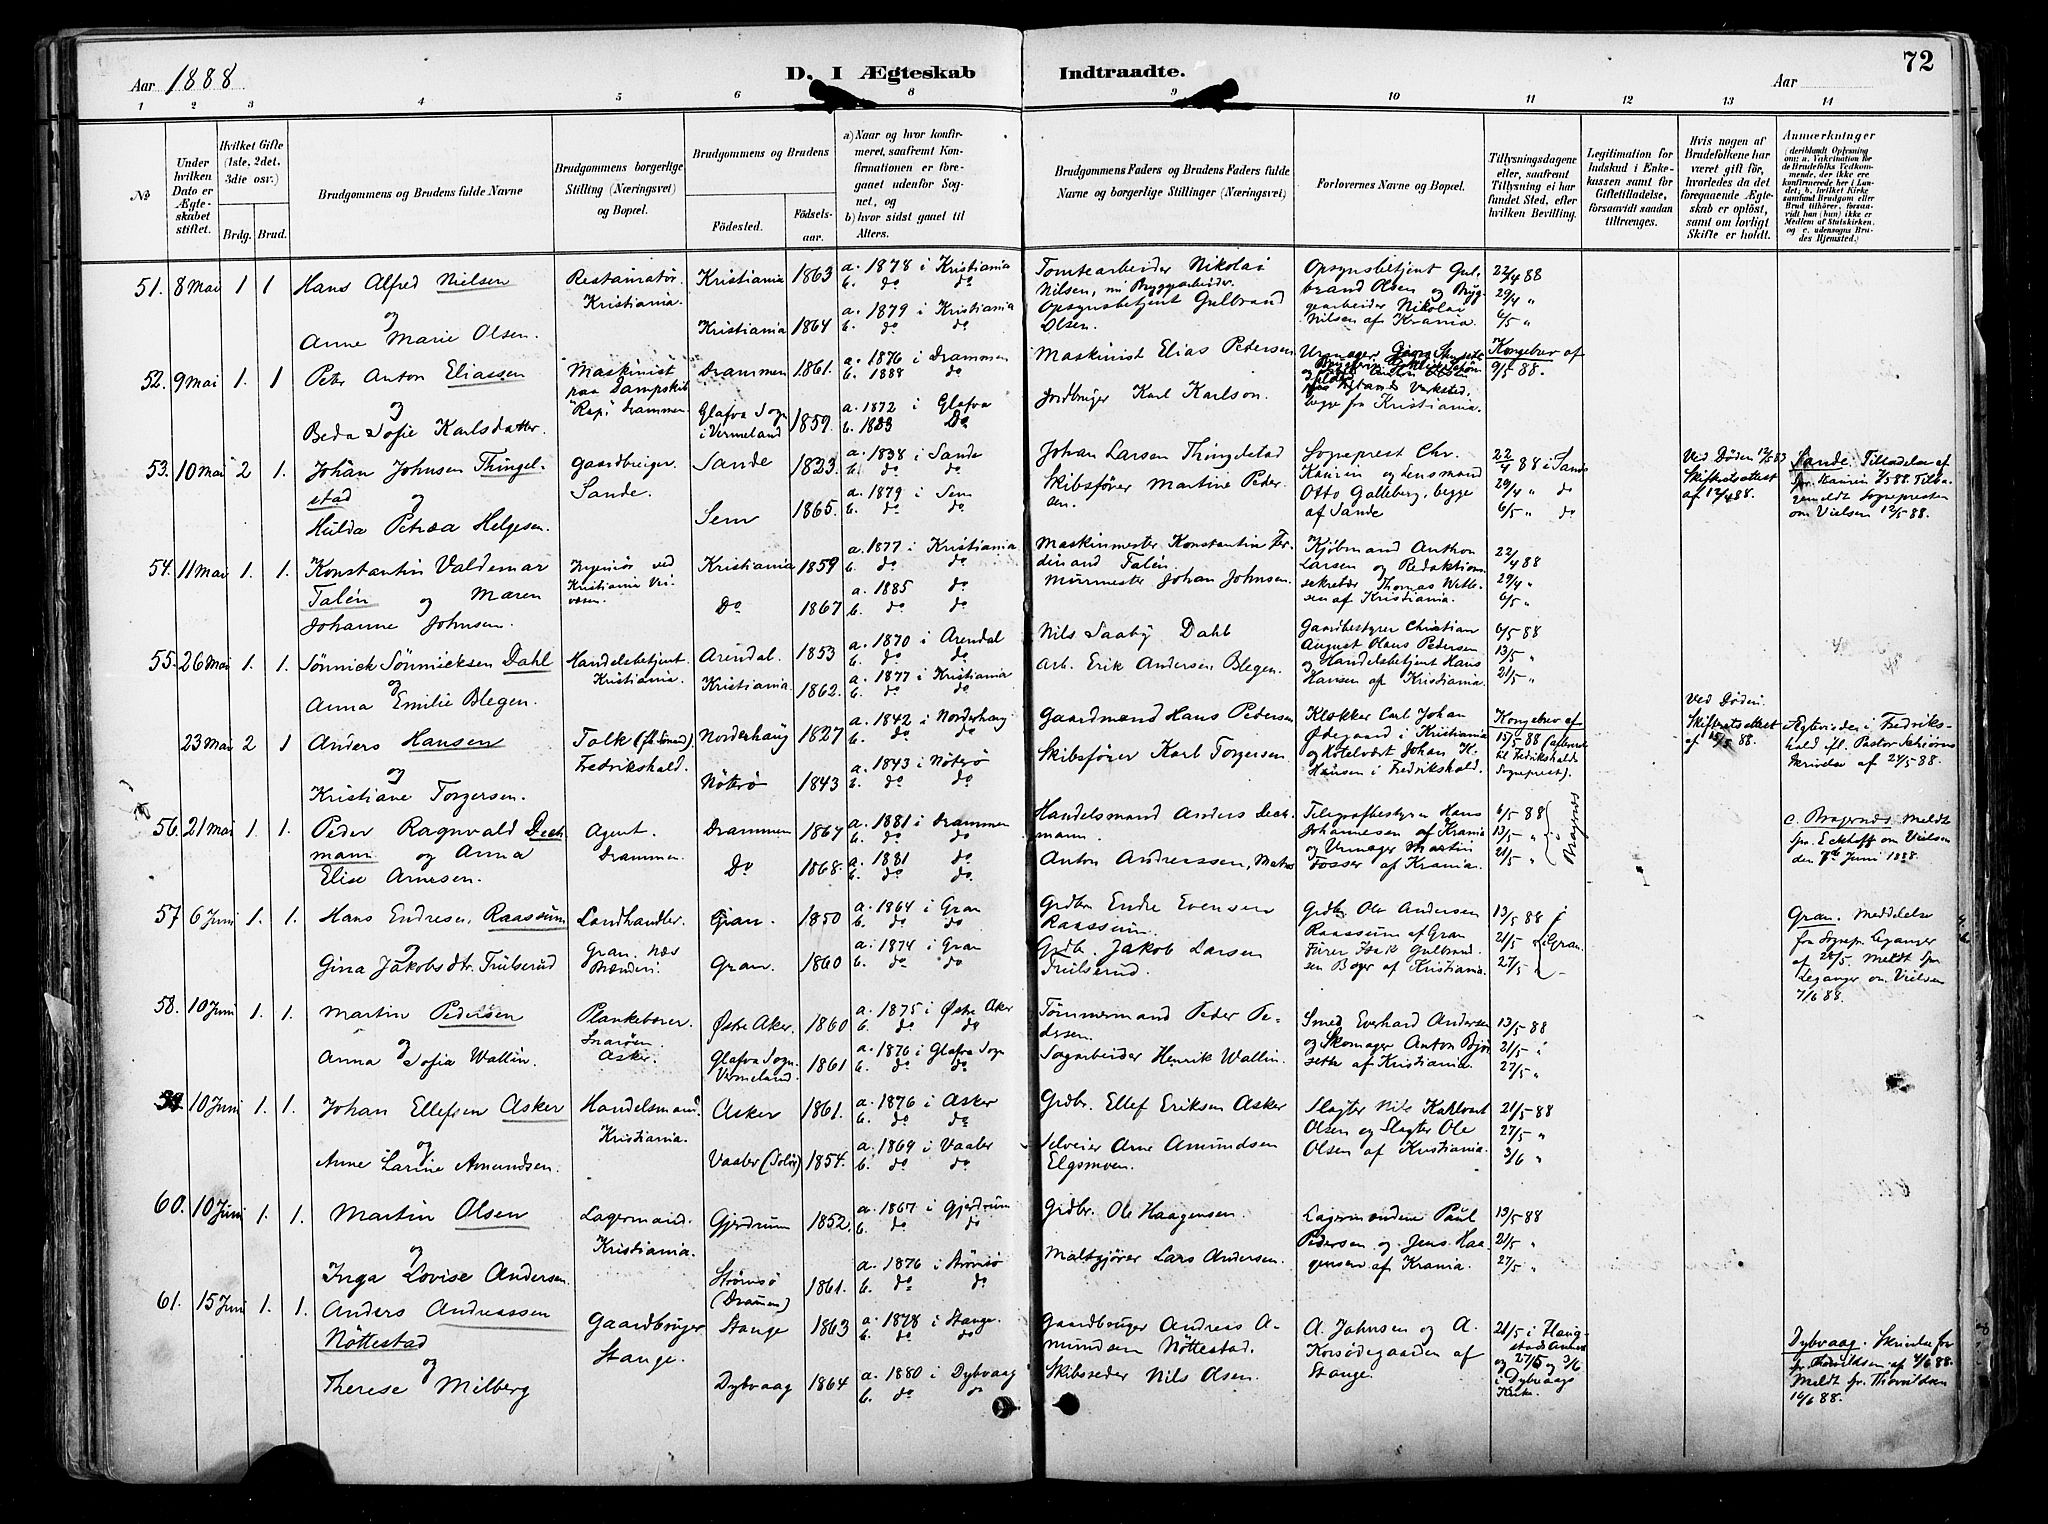 72
Aar 1888
D. I Ægteskab Indtraadte.
Aar
1 2 3 4 5 6 8 9 10 11 12 13 14
No
Under hvilken Dato er Ægteskabet stiftet.
Hvilket Gifte (1ste, 2det, 3die osv.)
Brdg. Brud.
Brudgommens og Brudens fulde Navne
Brudgommens borgerlige Stilling (Næringsvei) og Bopæl.
Brudgommens og Brudens
Fødested. Fødselsaar.
a) Naar og hvor konfirmeret, saafremt Konfirmationen er foregaaet udenfor Sognet, og
b) hvor sidst gaaet til Alters.
Brudgommens Faders og Brudens Faders fulde Navne og borgerlige Stillinger (Næringsvei)
Forlovernes Navne og Bopæl.
Tillysningsdagene eller, saafremt Tillysning ei har fundet Sted, efter hvilken Bevilling.
Legitimation for Indskud i Enkekassen samt for Giftetilladelse, forsaavidt saadan tiltrænges.
Hvis nogen af Brudefolkene har været gift før, hvorledes da det foregaaende Ægteskab er opløst, samt om lovligt Skifte er holdt.
Anmærkninger (deriblandt Oplysning om: a. Vakcination for de Brudefolks Vedkommende, der ikke ere konfirmerede her i Landet; b. hvilket Kirkesamfund Brudgom eller Brud tilhører, forsaavidt han (hun) ikke er Medlem af Statskirken, og c. udensogns Brudes Hjemsted.)
51. 8 Mai 1 1 Hans Alfred Nielsen Restauratør Kristiania. Kristiania 1863 a. 1878 i Kristiania b. do do Tomtearbeider Nikolai Nilsen, nu Bryggearbeider. Opsynsbetjent Gulbrand Olsen og Bryggearbeider Nikolai Nilsen af Krania. 22/4 88
og 29/4 "
Anne Marie Olsen. Kristiania 1864 a. 1879 i Kristiania b. do do Opsynsbetjent Gulbrand Olsen. 6/5 "
52. 9 Mai 1. 1 Peter Anton Eliassen Maskinist paa Dampskib "Rap", Drammen Drammen 1861. a. 1876 i Drammen b. 1888 do Maskinist Elias Pedersen Urmager Kongebrev af 9/5 88.
og
Beda Sofie Karlsdatter. Glafva Sogn i Vermeland 1859. a. 1872 i Glafva b. 1883 Do Jordbruger Karl Karlson. Verksted, begge fra Kristiania.
53. 10 Mai 2 1. Johan Johnsen Thingelstad Gaardbruger. Sande. Sande 1823. a. 1838 i Sande b. do do Johan Larsen Thingelstad Sogneprest Chr. Kaurin og Lensmand Otto Galleberg, begge af Sande 22/4 88 i Sande 29/4 " do 6/5 " do Ved Døden Skifteretsattest af 12/4 88. Sande. Tilladelse af
og
Hulda Petrea Helgesen. Sem 1865. a. 1879 i Sem b. do do Skibsfører Martine Pedersen. Sognepresten om Vielsen 12/5 88.
54. 11 Mai 1. 1. Konstantin Valdemar Talén og Maren Johanne Johnsen. Ingeniør ved Kristiania Kristiania 1859 a. 1877 i Kristiania b. do do Maskinmester Konstantin Ferdinand Talén. Kjøbmand Anthon Larsen og Redaktionssekretær Thomas af Kristiania. 22/4 88 29/4 " 6/5 "
Do 1867 a. 1885 do b. do do Murmester Johan Johnsen.
55. 26 Mai 1. 1. Sønnick Sønnicksen Dahl Handelsbetjent. Kristiania. Arendal. 1853 a. 1870 i Arendal b. do do Nils Saaby Dahl Gaardbestyrer Christian August Olaus Pedersen og Handelsbetjent Hans Hansen af Kristiania. 6/5 88 13/5 " 21/5 "
og
Anna Emilie Blegen. Kristiania. 1862. a. 1877 i Kristiania b. do do Arb. Erik Andersen Blegen.
23 Mai 2 1 Anders Hansen Tolk Fredrikshald. Norderhaug 1827 a. 1842 i Norderhaug b. do do Gaardmand Hans Pedersen Klokker Carl Johan Ødegaard i Kristiania og Hotelvært Johan H. Hansen i Fredrikshald. Kongebrev af 15/5 88 til Fredrikshalds Sogneprest). Ved Døden. Skifteretsattest af 15/5 88. Ægteviede i Fredrikshald ifl. Pastor Skrivelse af 24/5 88.
og
Kristiane Torgersen. Nøterø 1843 a. 1843 i Nøterø b. do do Skibsfører Karl Torgersen
56. 21 Mai 1. 1. Peder Ragnvald Deckmann og Anna Elise Arnesen. Agent. Drammen. Drammen 1867 a. 1881 i Drammen b. do do Handelsmand Anders Deckmann. Telegrafbestyrer Hans Johannesen af Krania og Urmager Martin Fosser af Krania. 6/5 88 13/5 " 21/5 " Bragernes c. Bragernes. Meldt spr. Eckhoff om Vielsen den 7de Juni 1888.
Do 1868. a. 1881 do b. do do Anton Andreassen, Matros
57 6 Juni 1. 1. Hans Endresen Raassum Landhandler. Gran. 1850 a. 1864 i Gran b. do do Grdbr. Endre Evensen Raassum. Grdbr. Ole Andersen Raassum af Gran Isak Gulbrandsen Bager af Kristiania. 13/5 88 21/5 " 27/5 " Gran. Gran. Meddelse fra Sognepr. Leganger af 28/5. Meldt spr. Leganger om Vielsen 7/6 88.
og
Gina Jakobsdtr. Trulserud Gran. 1860 a. 1874 i Gran b. do do Grdb. Jakob Larsen Trulserud.
58. 10 Juni 1. 1. Martin Pedersen Plankebærer. Snarøen Asker. Østre Aker. 1860 a. 1875 i Østre Aker b. do do Tømmermand Peder Pedersen. Smed Everhard Andersen og Skomager Anton af Kristiania. 13/5 88 21/5 " 27/5 "
og
Anna Sofia Wallin. Glafva Sogn. Vermeland. 1861 a. 1876 i Glafva Sogn b. do do Sagarbeider Henrik Wallin.
59 10 Juni 1. 1. Johan Ellefsen Asker Handelsmand. Kristiania. Asker 1861. a. 1876 i Asker b. do do Grdbr. Ellef Eriksen Asker Slagter Nils Olsen og Slagter Ole Olsen af Kristiania. 21/5 88 27/5 " 3/6 "
og
Anne Larine Amundsen. Vaaler (Solør) 1854. a. 1869 i Vaaler b. do do Selveier Arne Amundsen Elgsmoen.
60. 10 Juni 1. 1. Martin Olsen Lagermand. Kristiania. Gjerdrum 1852. a. 1867 i Gjerdrum b. do do Grdbr. Ole Haagensen. Lagermændene Paul Pedersen og Jens Haagensen af Krania. 13/5 88 21/5 " 27/5 "
og
Inga Lovise Andersen Strømsø (Drammen) 1861. a. 1876 i Strømsø b. do do Maltgjører Lars Andersen.
61. 15 Juni 1. 1. Anders Andreassen Nøttestad Gaardbruger Stange. Stange 1863 a. 1878 i Stange. b. do do Gaardbruger Andreas Amundsen Nøttestad. A. Johnsen og A. Korsødegaarden af Stange. 21/5 i og 27/5 og 3/6 i Dybvaag Kirke. Dybvaag. Skrivelse fra spr. Thorvildsen af 4/6 88. Meldt spr. Thorvildsen 16/6 88.
og
Therese Milberg Dybvaag 1864 a. 1880 i Dybvaag b. do do Skibsreder Nils Olsen.